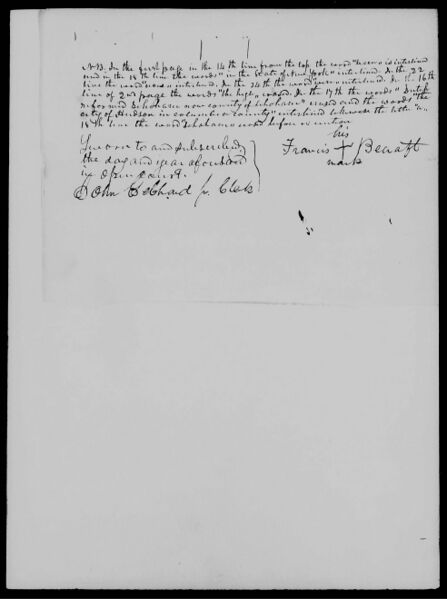 N.B. In the first page in the 14th line from the top the word "were" is interlined
and in the 18th line the words "in the State of New York" interlined. In the 22
line the word "was" interlined. In the 24th the word " " interlined. In the 16th
line of 2nd page the words "the high" erased. In the 17th the words "Dutch
reformed Schoharie now county of Schoharie" erased and the words "the
city of Hudson in Columbia County" interlined likewise the letter "a"
18th line the word Schoharie before
Sworn to and subscribed
the day and year aforesaid
in open court.
John Gebhard Jr. Clerk
his
Francis + Beratzt
mark